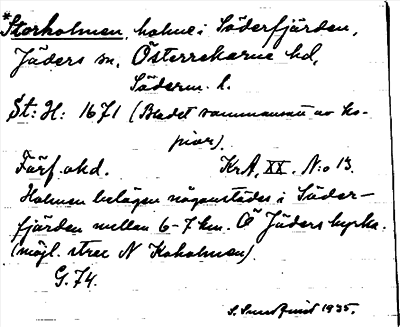 *Storholmen, holme i Söderfjärden,
Jäders sn, Österrekarne hd,
Söderm. l.
St: H: 1671 (Bladet sammansatt av ko-
pior).
Färf. akd. KrA, XX. N:o 13.
Holmen belägen någonstädes i Söder-
fjärden mellan 6-7 km. Ö Jäders kyrka.
(möjl. strax N Koholmen).
G. 74.
S. Sundquist 1935.